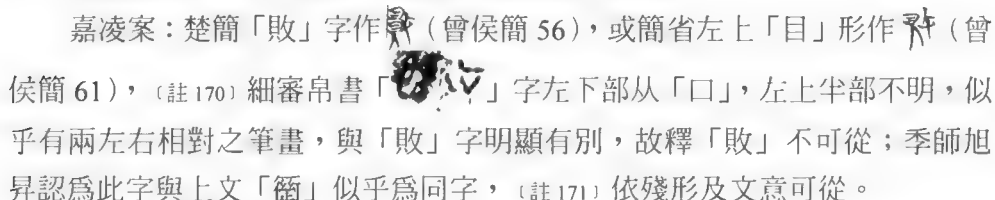 嘉凌案：楚簡「敗」字作（曾侯簡 56），或簡省左上「目」形作（曾
侯簡 61），〔註 170〕細審帛書「」字左下部从「口」，左上半部不明，似
乎有兩左右相對之筆畫，與「敗」字明顯有別，故釋「敗」不可從；季師旭
昇認為此字與上文「」似乎為同字，〔註 171〕依殘形及文意可從。